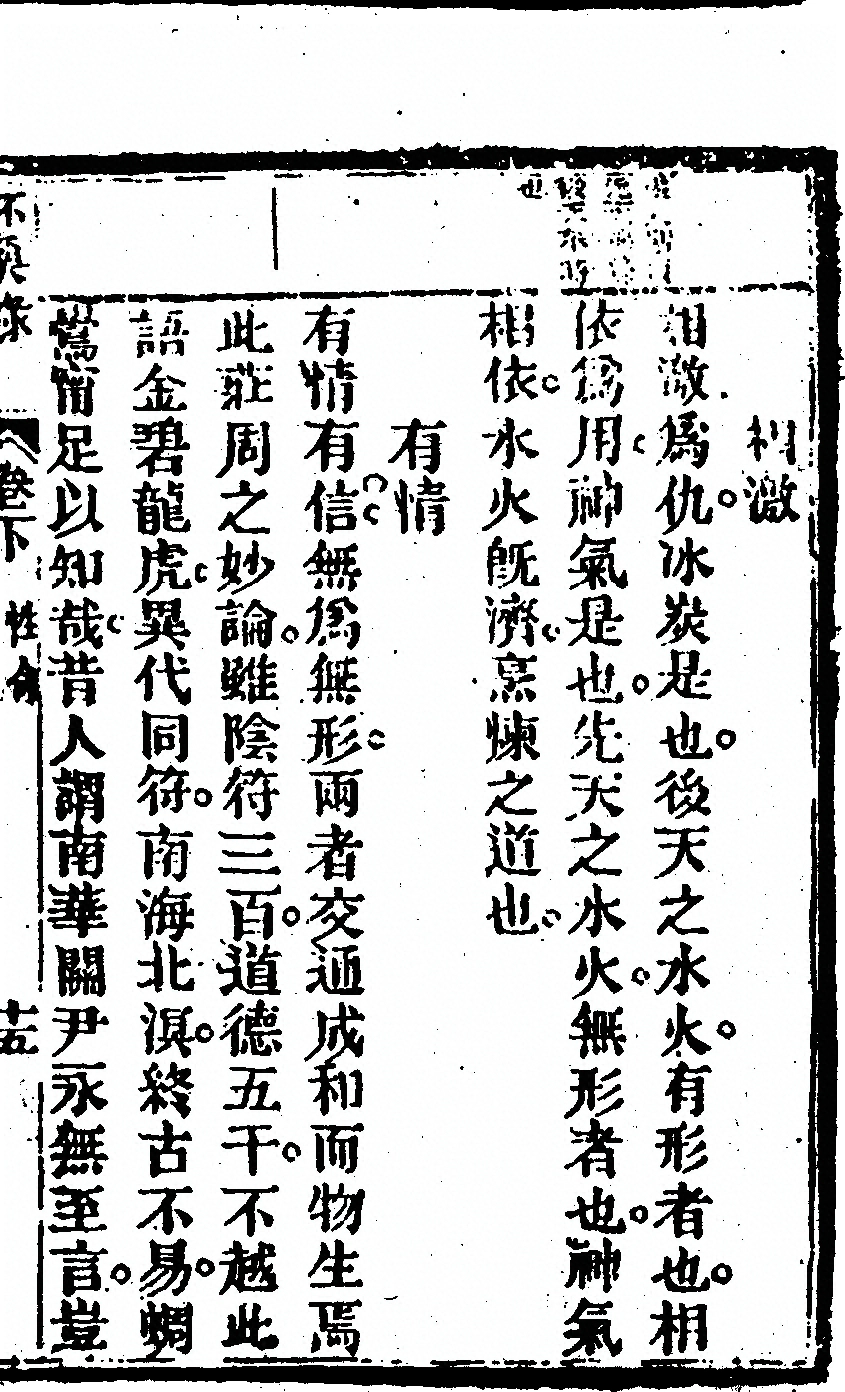 相激
相激爲仇冰炭是也後天之水火有形者也相
依爲用神氣是也先天之水火無形者也神氣
相依水火旣濟烹煉之道也
有情
有情有信無爲無形兩者交通成和而物生焉
此莊周之妙論雖陰符三百道德五千不越此
語金碧龍虎異代同符南海北溟終古不易蜩
鷽甯足以知哉昔人謂南華關尹永無至言豈
卷下 性命
十五